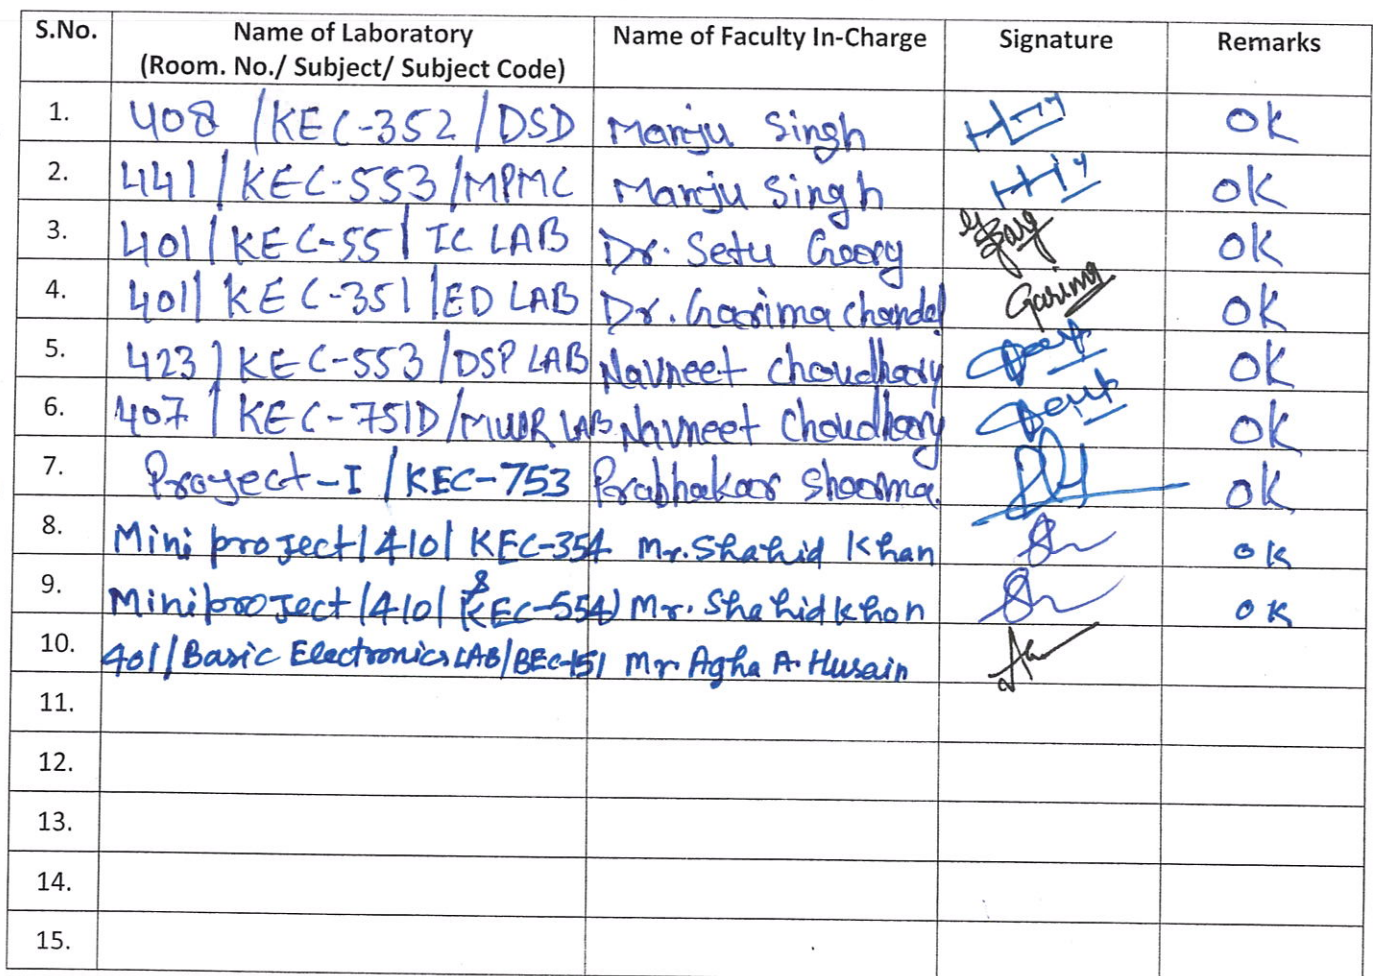 S.No. Name of Laboratory Name of Faculty In-Charge Signature Remarks
(Room. No./ Subject/ Subject Code)
1. 408 /KEC-352 /DSD Manju Singh OK
2. 441/KEC-553/MPMC Manju Singh OK
3. 401/KEC-55/ IC LAB Dr. Setu Garg Garg OK
4. 401/ KEC-351 /ED LAB Dr. Garima Chandel Garima OK
5. 423/KEC-553/DSP LAB Navneet Choudhary OK
6. 407/KEC-751D/MWR LAB Navneet Choudhary OK
7. Project-I /KEC-753 Prabhakar Sharma. OK
8. Mini project/410/ KEC-354 Mr. Shahid Khan OK
9. Miniproject/410/ KEC-554) Mr. Shahid Khan OK
10. 401/Basic Electronics LAB/BEC-151 Mr. Agha A. Husain
11.
12.
13.
14.
15.